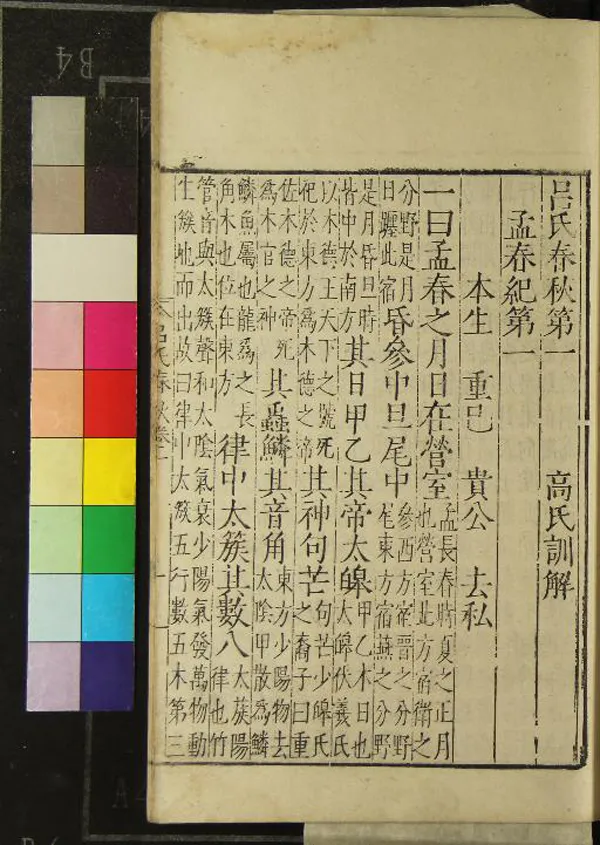 呂氏春秋第一　高氏訓解
孟春紀第一
本生　重己　貴公　去私
一曰孟春之月日在營室孟長春時夏之正月也營室北方宿衛之
分野是月日躔此宿昏參中旦尾中參西方宿晉之分野尾東方宿燕之分野
是月昏旦時皆中於南方其日甲乙其帝太皞甲乙木日也太皞伏羲氏
以木德王天下之號死祀於東方爲木德之帝其神句芒句芒少皞氏之裔子曰重
佐木德之帝死爲木官之神其蟲鱗其音角東方少陽物去太陰甲散爲鱗
鱗魚屬也龍爲之長角木也位在東方律中太簇其數八太蔟陽律也竹
管音與太簇聲和太陰氣衰少陽氣發萬物動生簇地而出故曰律中太簇五行數五木第三
呂氏春秋卷一
B4